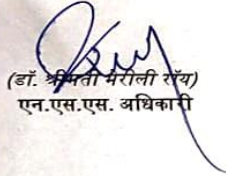 (डॉ. श्रीमती मैरीली रॉय)
एन.एस.एस. अधिकारी